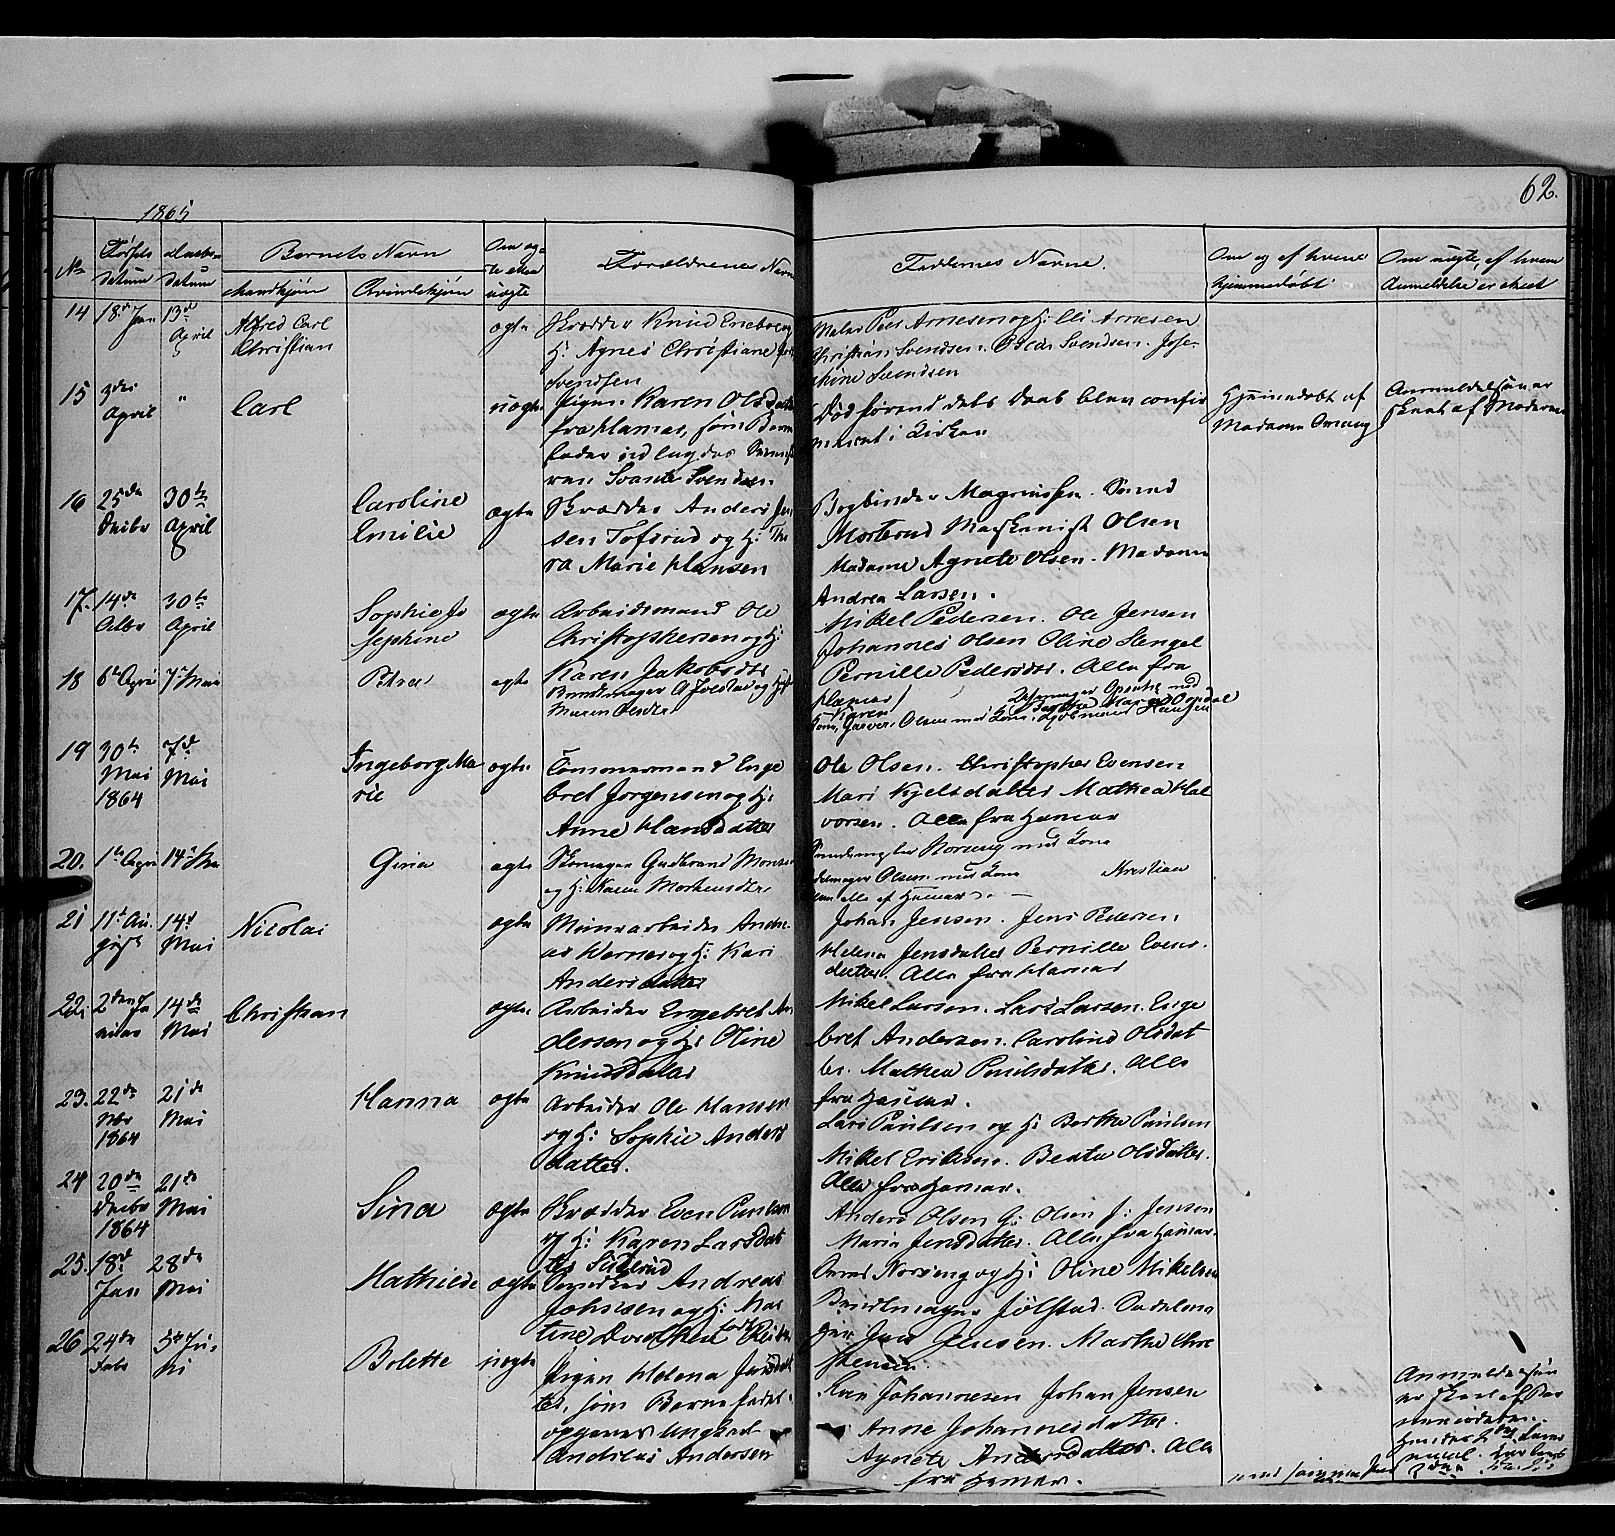 62.
1865
No
Fødsels
datum
Daabs-
datum
Barnets Navn
Mandkjøn
Qvindekjøn
Om æg-
te eller
uægte
Forældrenes Navn
Faddernes Navne.
Om og af hvem
hjemmedøbt
Om uægte, af hvem
Anmeldelse er skeet
14 18de Jan 13de
April
Alfred Carl
Christian
ægte
Skrædder Knud
H: Agnes Christiane
Svendsen
Maler Peer Arnesen og H: Eli Arnesen
Christian Svendsen. Oscar Svendsen. Jose-
phine Svendsen
15 3die
April
"
Carl
uægte
Pigen Karen Olsdatter
fra Hamar, som Barne
fader udlagdes
Svante Svendsen
Død førend dets Daab blev confir
meret i Kirken
Hjemmedøbt af
Madame
Anmeldelsen er
skeet af Moderen
16 25de
Decbr
30te
April
Caroline
Emilie
ægte
Skrædder Anders Jen
sen Tofsrud og H: Tho
ra Marie Hansen
Bogbinder Magnussen.
Morterud Maskenist Olsen
Madame Agnete Olsen. Madame
Andrea Larsen.
17. 14de
Octbr
30te
April
Sophie Jo
sephine
ægte
Arbeidsmand Ole
Christophersen og H:
Karen Jakobsdtr
Mikel Pedersen. Ole Jensen
Johannes Olsen Oline Stengel
Pernille Pedersdtr. Alle fra
Hamar
18 6te April 7de Mai
Petra
ægte
Bundtmager O Jølstad og H:
Maren Olsdtr
Garver Olsen med Kone
19 30te
Mai
1864
7de
Mai
Ingeborg Ma
rie
ægte
Tømmermand Enge
bret Jørgensen og H:
Anne Hansdatter
Ole Olsen. Christopher Evensen
Mari Kjelsdatter Mathea Hal
vorsen. Alle fra Hamar
20. 1te April 14de Mai
Gina
ægte
Skomager Gudbrand Monsen
og H: Karen Mortensdtr.
med Kone
Olsen med Kone Kristian
alle af Hamar.
21 11te Au-
gust
14de
Mai
Nicolai
ægte
Minearbeider Andre-
as Werner og H: Kari
Andersdatter
Johan Jensen. Jens Pedersen
Helena Jensdatter Pernille Evens-
datter. Alle fra Hamar
22. 2den Ja
nuar
14de
Mai
Christian
ægte
Arbeider Engebret An
dersen og H: Oline
Knudsdatter
Mikel Larsen. Lars Larsen. Enge
bret Andersen. Caroline Olsdat
ter. Mathea Poulsdatter. Alle
fra Hamar.
23. 22de
Nbr
1864
21de
Mai
Hanna
ægte
Arbeider Ole Hansen
og H: Sophie Anders
datter.
Lars Paulsen og H: Berthe Paulsen
Mikel Eriksen. Beata Olsdatter.
Alle fra Hamar.
24 20de
Decbr
1864
21de
Mai
Sina
ægte
Skrædder Even Paulsen
og H: Karen Larsdat
ter
Anders Olsen G: Olsen J: Jensen
Maria Jensdatter. Alle fra Hamar.
25. 18de
Jan
28de
Mai
Mathilde
ægte
Andreas
Johnsen og H: Mar
tine Dorothea
og H: Oline Mikelsen
Bundtmager Jølstad. Sadelma
ger Jens Jensen. Marthe Chri
stensen.
26 24de
Febr
5te Ju-
ni
Bolette
uægte
Pigen Helena Jensdat
ter, som Barnefader
opgaves Ungkarl
Andreas Andersen
Johannesen Johan Jensen
Anne Johannesdatter.
Agnete Andersdatter. Alle
fra Hamar.
Anmeldelsen
er skeet af